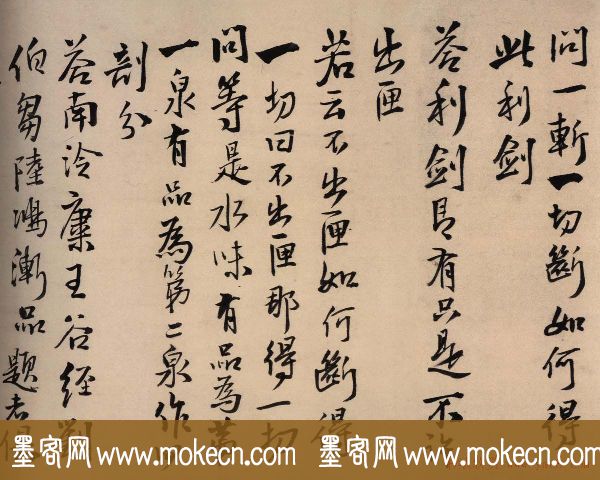 問一斬一切斷如何得
此利劍
荅利劍見有只是不
出匣
若云不出匣如何斷得
一切曰不出匣那得一切
問等是水味有品為
一泉有品為第二泉作
剖分
荅南泠康王谷經
伯芻陸鴻漸品題者
墨客网 www.mokecn.com 墨客网 www.mokecn.com